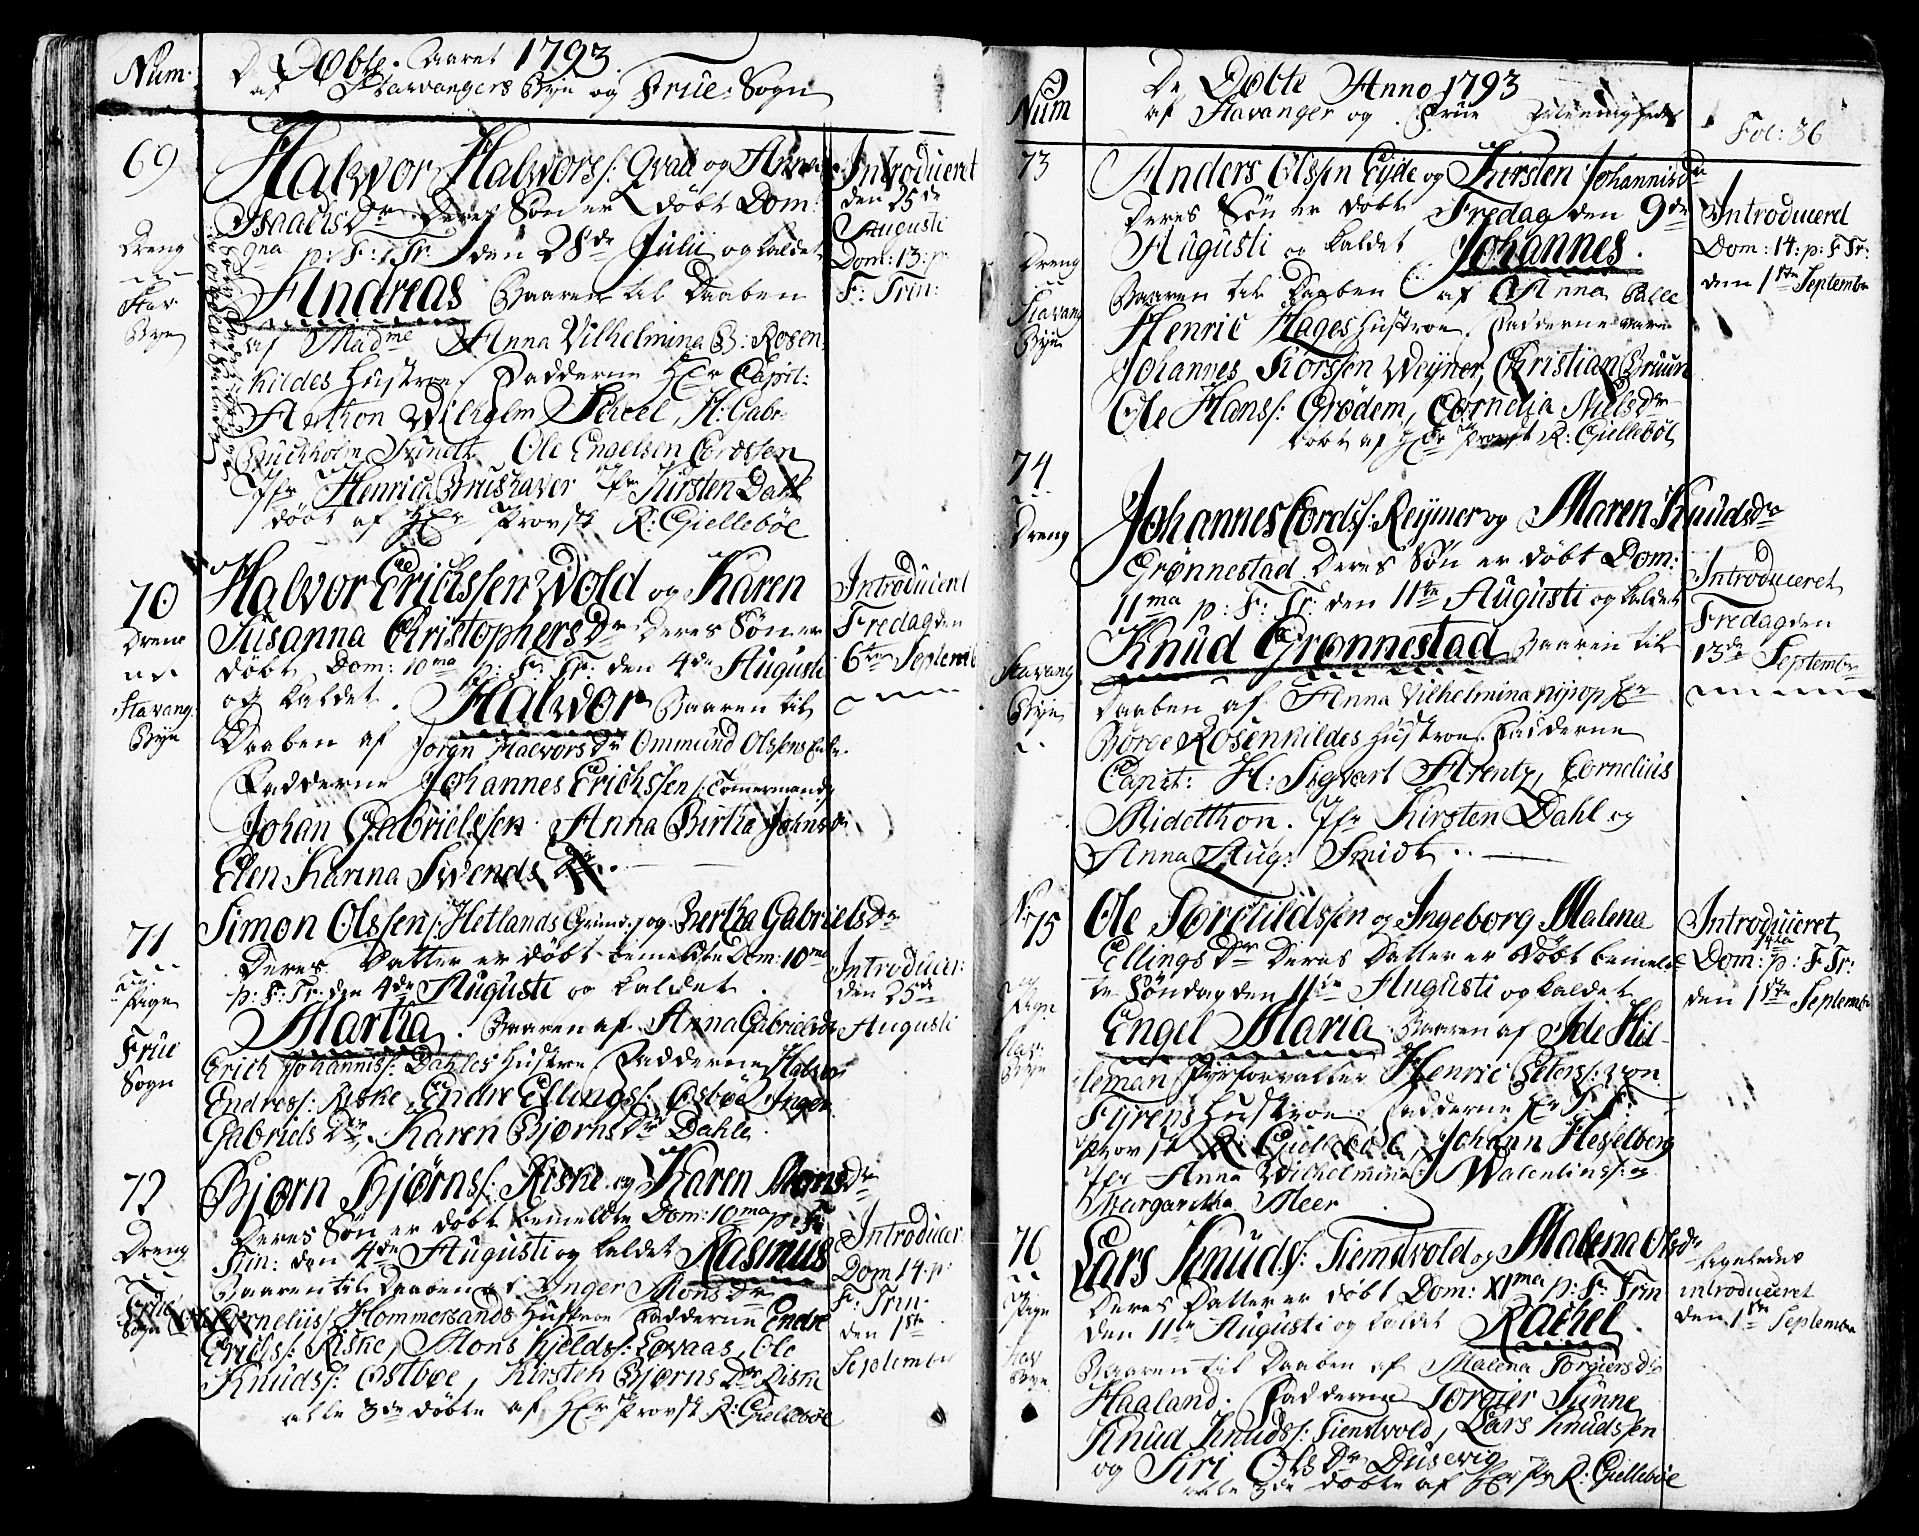 Num.
De Døbte. Aaret 1793.
af Stavangers Bye og Frue Sogn
69
Dreng
Stav:
Bye
Halvor Halvorss: Qvad og Anna
Isaachs Dr Deres Søn er døbt Dom:
9na p: F: Tr: den 28de Julii og kaldet
Andreas Baaren til Daaben
af Madme Anna Vilhelmina B: Rosen-
kildes Hustroe Fadderne Hr Capit:
Anthon Wilhelm Scheel, H: Gabr:
Buchholm Smidt, Ole Engelsen Corssen
Jfr Henrica Brushaver Jfr Kirsten Dahl
døbt af Hr Provst R: Giellebøe
Introduceret
den 25de
Augusti
Dom: 13: p:
F: Trin:
70
Dreng
Stavang:
Bye
Halvor Erichssen Wold og Karen
Susanna Christophers Dr Deres Søn er
døbt Dom: 10ma p: F: Tr: den 4de Augusti
og kaldet. Halvor Baaren til
Daaben af Jøran Halvors Dr Ommund Olssens
Fadderne Johannes Erichssen Tømmermand
Johan Gabrielssen Anna Birtha Johns Dr
Elen Karina Swends Dr.
Introduceret
Fredag den
6te Septemb:
71
Pige
Frue
Sogn
Simon Olssen Hetlands Grund og Bertha Gabriels Dr
Deres Datter er døbt bemeldte Dom: 10ma
p: F: Tr: den 4de Augusti og kaldet.
Martha. Baaren af Anna Gabriels Dr
Erich Johanniss: Dahles Hustroe Fadderne Halvor
Endress: Riske, Endre Ellingss: Østbøe Inger
Gabriels Dr, Karen Bjørns Dr Dahle.
Introducer:
den 25de
Augusti
72
Dreng
Frue
Sogn
Bjørn Bjørnss: Riske og Karen Mons Dr
Deres Søn er døbt bemeldte Dom: 10ma p: F:
Trin: den 4de Augusti og kaldet Rasmus
Baaren til Daaben af Inger Mons Dr
Cornelius Hommersands Hustroe Fadderne Endre
Erichss: Riske, Mons Kieldss: Lovaas, Ole
Knudss: Østbøe, Kirsten Bjørns Dr Riske
alle 3de døbte af Hr Provst R: Giellebøe
Introducer
Dom 14 p:
F: Trin.
den 1ste
Septembr
Num
De Døbte Anno 1793
af Stavanger og Frue
Fol: 36
73
Dreng
Stavang
Bye
Anders Olssen Eyde og Kirsten Johannis Dr
Deres Søn er døbt Fredag den 9de
Augusti og kaldet Johannes.
Baaren til Daaben af Anna
Henric Hages Hustroe. Fadderne vare
Johannes Korssen Weyner, Christian Bruun
Ole Hanss: Grødem, Cornelia Niels Dr
døbt af Hr Provst R: Giellebøe
Introducerd
Dom: 14: p: F Tr:
den 1ste Septembr
74
Dreng
Stavang
Bye
Johannes Cordss: Reymer og Maren Knuds Dr
Grønnestad Deres Søn er døbt Dom:
11ma p: F: Tr: den 11te Augusti og kaldet
Knud Grønnestad Baaren til
Daaben af Anna Vilhelmina Nyrop Hr
Børge Rosenkildes Hustroe. Fadderne
Capit: H: Sigvart Arentz, Cornelius
Midelthon. Jfr Kirsten Dahl og
Anna Aug: Smidt.
Introduceret
Fredag den
13de Septembr
No 75
Pige
Stav:
Bye
Ole Torkildssen og Ingeborg Malena
Ellings Dr Deres Datter er døbt bemeld-
te Søndag den 11te Augusti og kaldet
Engel Maria. Baaren af Ide Hil-
leman Fyrforvalter Henric Peterss: von
Fyrens Hustroe. Fadderne Hr
Provst R: Giellebøe, Johann Hesselberg
Jfr Anna Wilhelmina Walentinss: og
Margaretha Meer
Introduceret
Dom: 14ta p: F Tr:
den 1ste Septembr
76
Pige
Stav
Bye
Lars Knudss: Tiemsvold og Malena Ols Dr
Deres Datter er døbt Dom: XIma p: F: Trin
den 11te Augusti og kaldet Rachel
Baaren til Daaben af Malena Torgiers Dr
Haaland. Fadderne Torgier Sunne
Knud Knudss: Tiemsvold, Lars Knudssen
og Siri Ols Dr Dusevig
alle 3de døbte af Hr Pr R: Giellebøe
ligeledes
introduceret
den 1ste Septembr